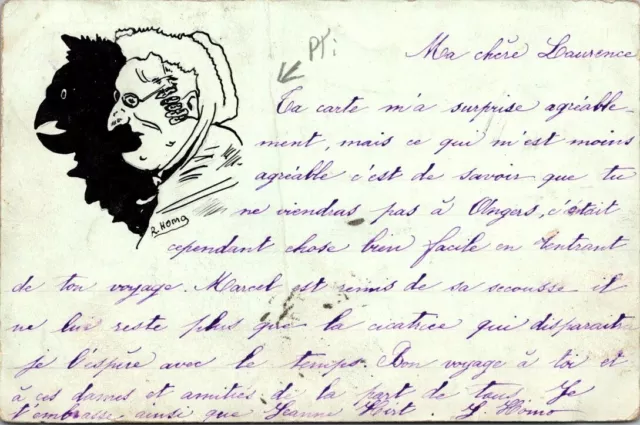 Pf:
Ma chère Laurence
Ta carte m'a surprise agréable-
ment, mais ce qui m'est moins
agréable c'est de savoir que tu
ne viendras pas à Angers, c'était
R. Homo
cependant chose bien facile en rentrant
de ton voyage. Marcel est remis de sa secousse et
ne lui reste plus que la cicatrice qui disparaitra
je l'espère avec le temps. Bon voyage à toi et
à ces dames et amitiés de la part de tous. Je
t'embrasse ainsi que Jeanne Hirt. J. Homo